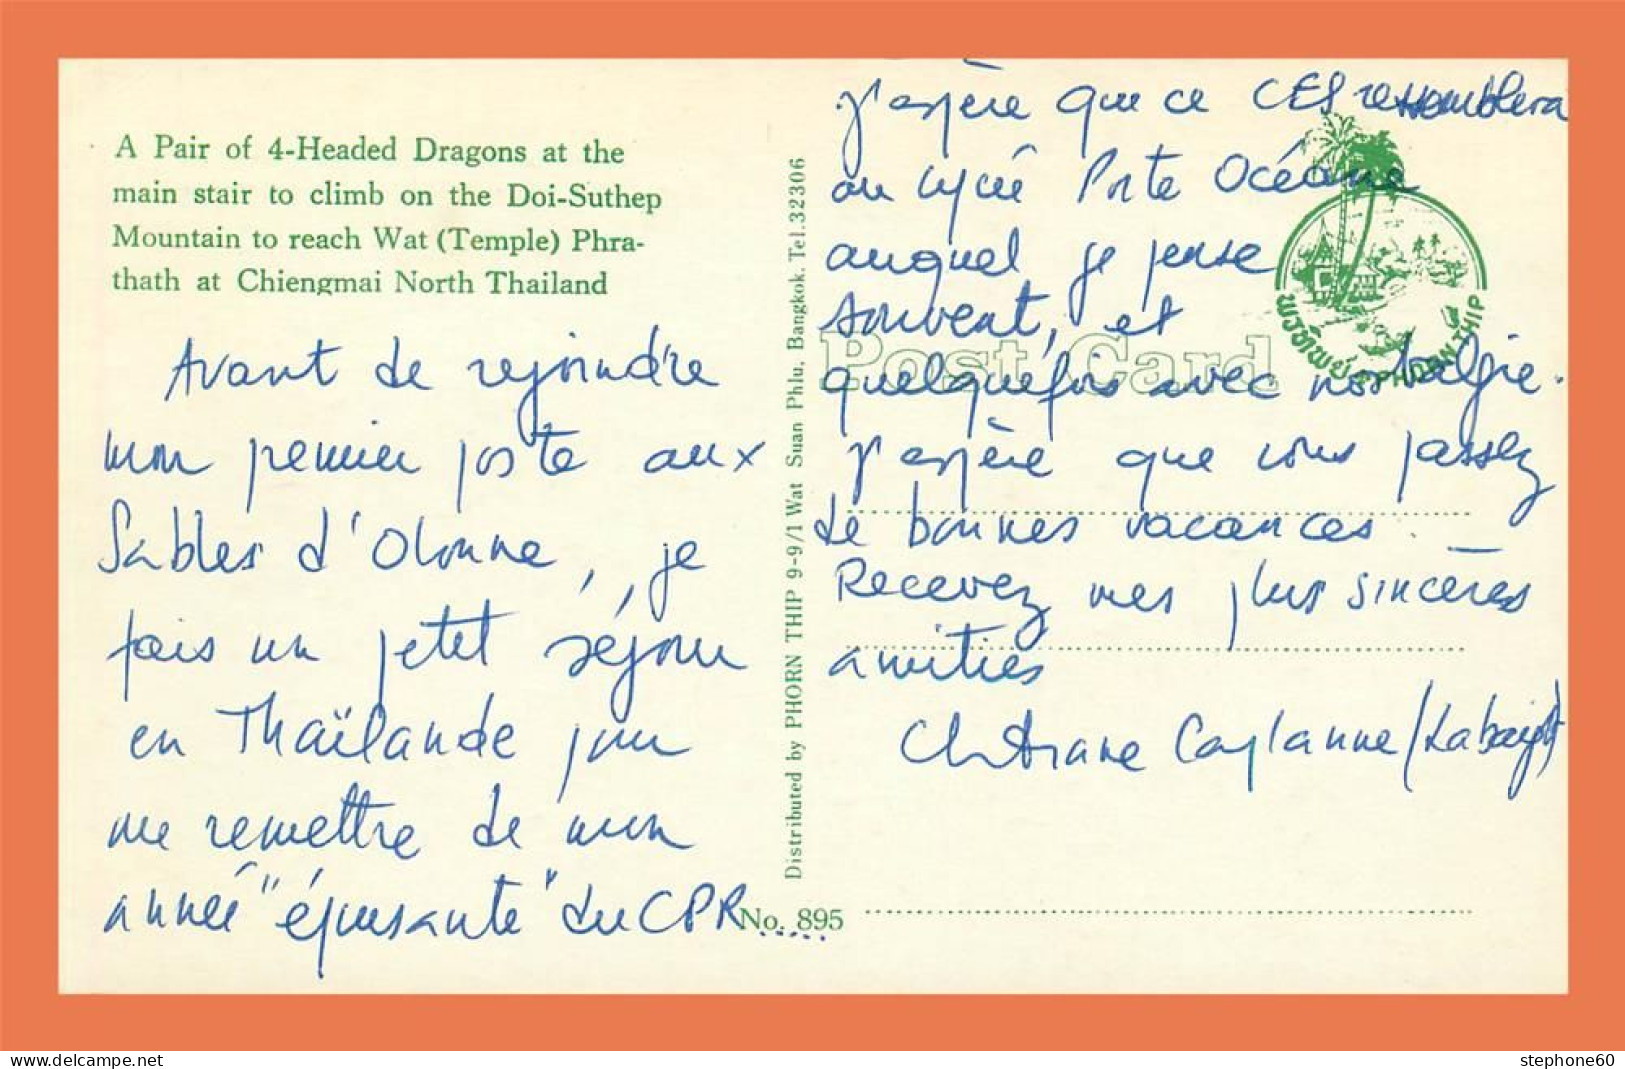 A Pair of 4-Headed Dragons at the
main stair to climb on the Doi-Suthep
Mountain to reach Wat (Temple) Phra-
thath at Chiengmai North Thailand
Avant de rejoindre
mon premier poste aux
Sables d'Olonne, je
fais un petit séjour
en Thaïlande pour
me remettre de mon
année "épuisante" du CPR.....
No. 895
Distributed by PHORN THIP 9-9/1 Wat Suan Phlu, Bangkok. Tel. 32306
j'espère que ce CES ressemblera
au lycée Porte Océane
auquel je pense
souvent, et
quelquefois avec nostalgie.
j'espère que vous passez
de bonnes vacances.
Recevez mes plus sincères
amitiés
Christiane
Post Card
พรทิพย์ PHORN THIP
www.delcampe.net
stephone60